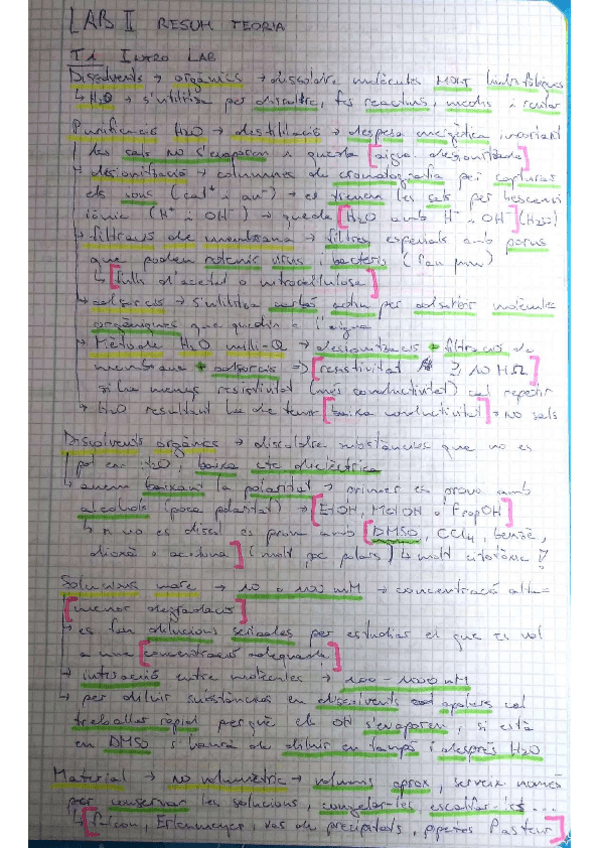 LAB II RESUM TEORIA
T1 INTRO LAB
Dissolvents → orgànics → dissoldre molècules MOLT hidrofòbiques
↳ H2O → s'utilitza per dissoldre, fer reactius, medis i rentar
Purificació H2O → destil·lació → despesa energètica important
les sals NO s'evaporen i queda [aigua desionitzada]
→ desionització → columnes de cromatografia per capturar
els ions (cat+ i an-) → es treuen les sals per bescanvi
iònic (H+ i OH-) → queda [H2O amb H+ i OH-] (H2O)
→ filtració de membrana → filtres especials amb porus
que poden retenir virus i bacteris
↳ [fulls d'acetat o nitrocel·lulosa]
→ adsorció → s'utilitza carbó actiu per adsorbir molècules
orgàniques que quedin a l'aigua
→ Mètode H2O milli-Q → desionització + filtració de
membrana + adsorció => [resistivitat ≥ 10 MΩ]
si hi ha menys resistivitat (més conductivitat) cal repetir
→ H2O resultant ha de tenir [baixa conductivitat] → NO sals
Dissolvents orgànics → dissoldre substàncies que no es
pot en H2O, baixa cte dielèctrica
→ anem baixant la polaritat → primer es prova amb
alcohols (poca polaritat) → [EtOH, MetOH o PropOH]
↳ si no es disol es prova amb [DMSO, CCl4, benzè,
dioxà o acetona] (molt poc polars) ↳ molt citotòxic !!
Solucions mare → 10 o 100 mM → concentració alta =
[menor degradació]
↳ es fan dilucions seriades per estudiar el que es vol
a una [concentració adequada]
→ interacció entre molècules → 100 - 1000 nM
→ per diluir substàncies en dissolvents apolars cal
treballar ràpid perquè els OH s'evaporen, si està
en DMSO s'haurà de diluir en tampó i després H2O
Material → no volumètric → volums aprox, serveix només
per conservar les solucions, congelar-les, escalfar-les...
↳ [Falcon, Erlenmeyer, vas de precipitats, pipetes Pasteur]